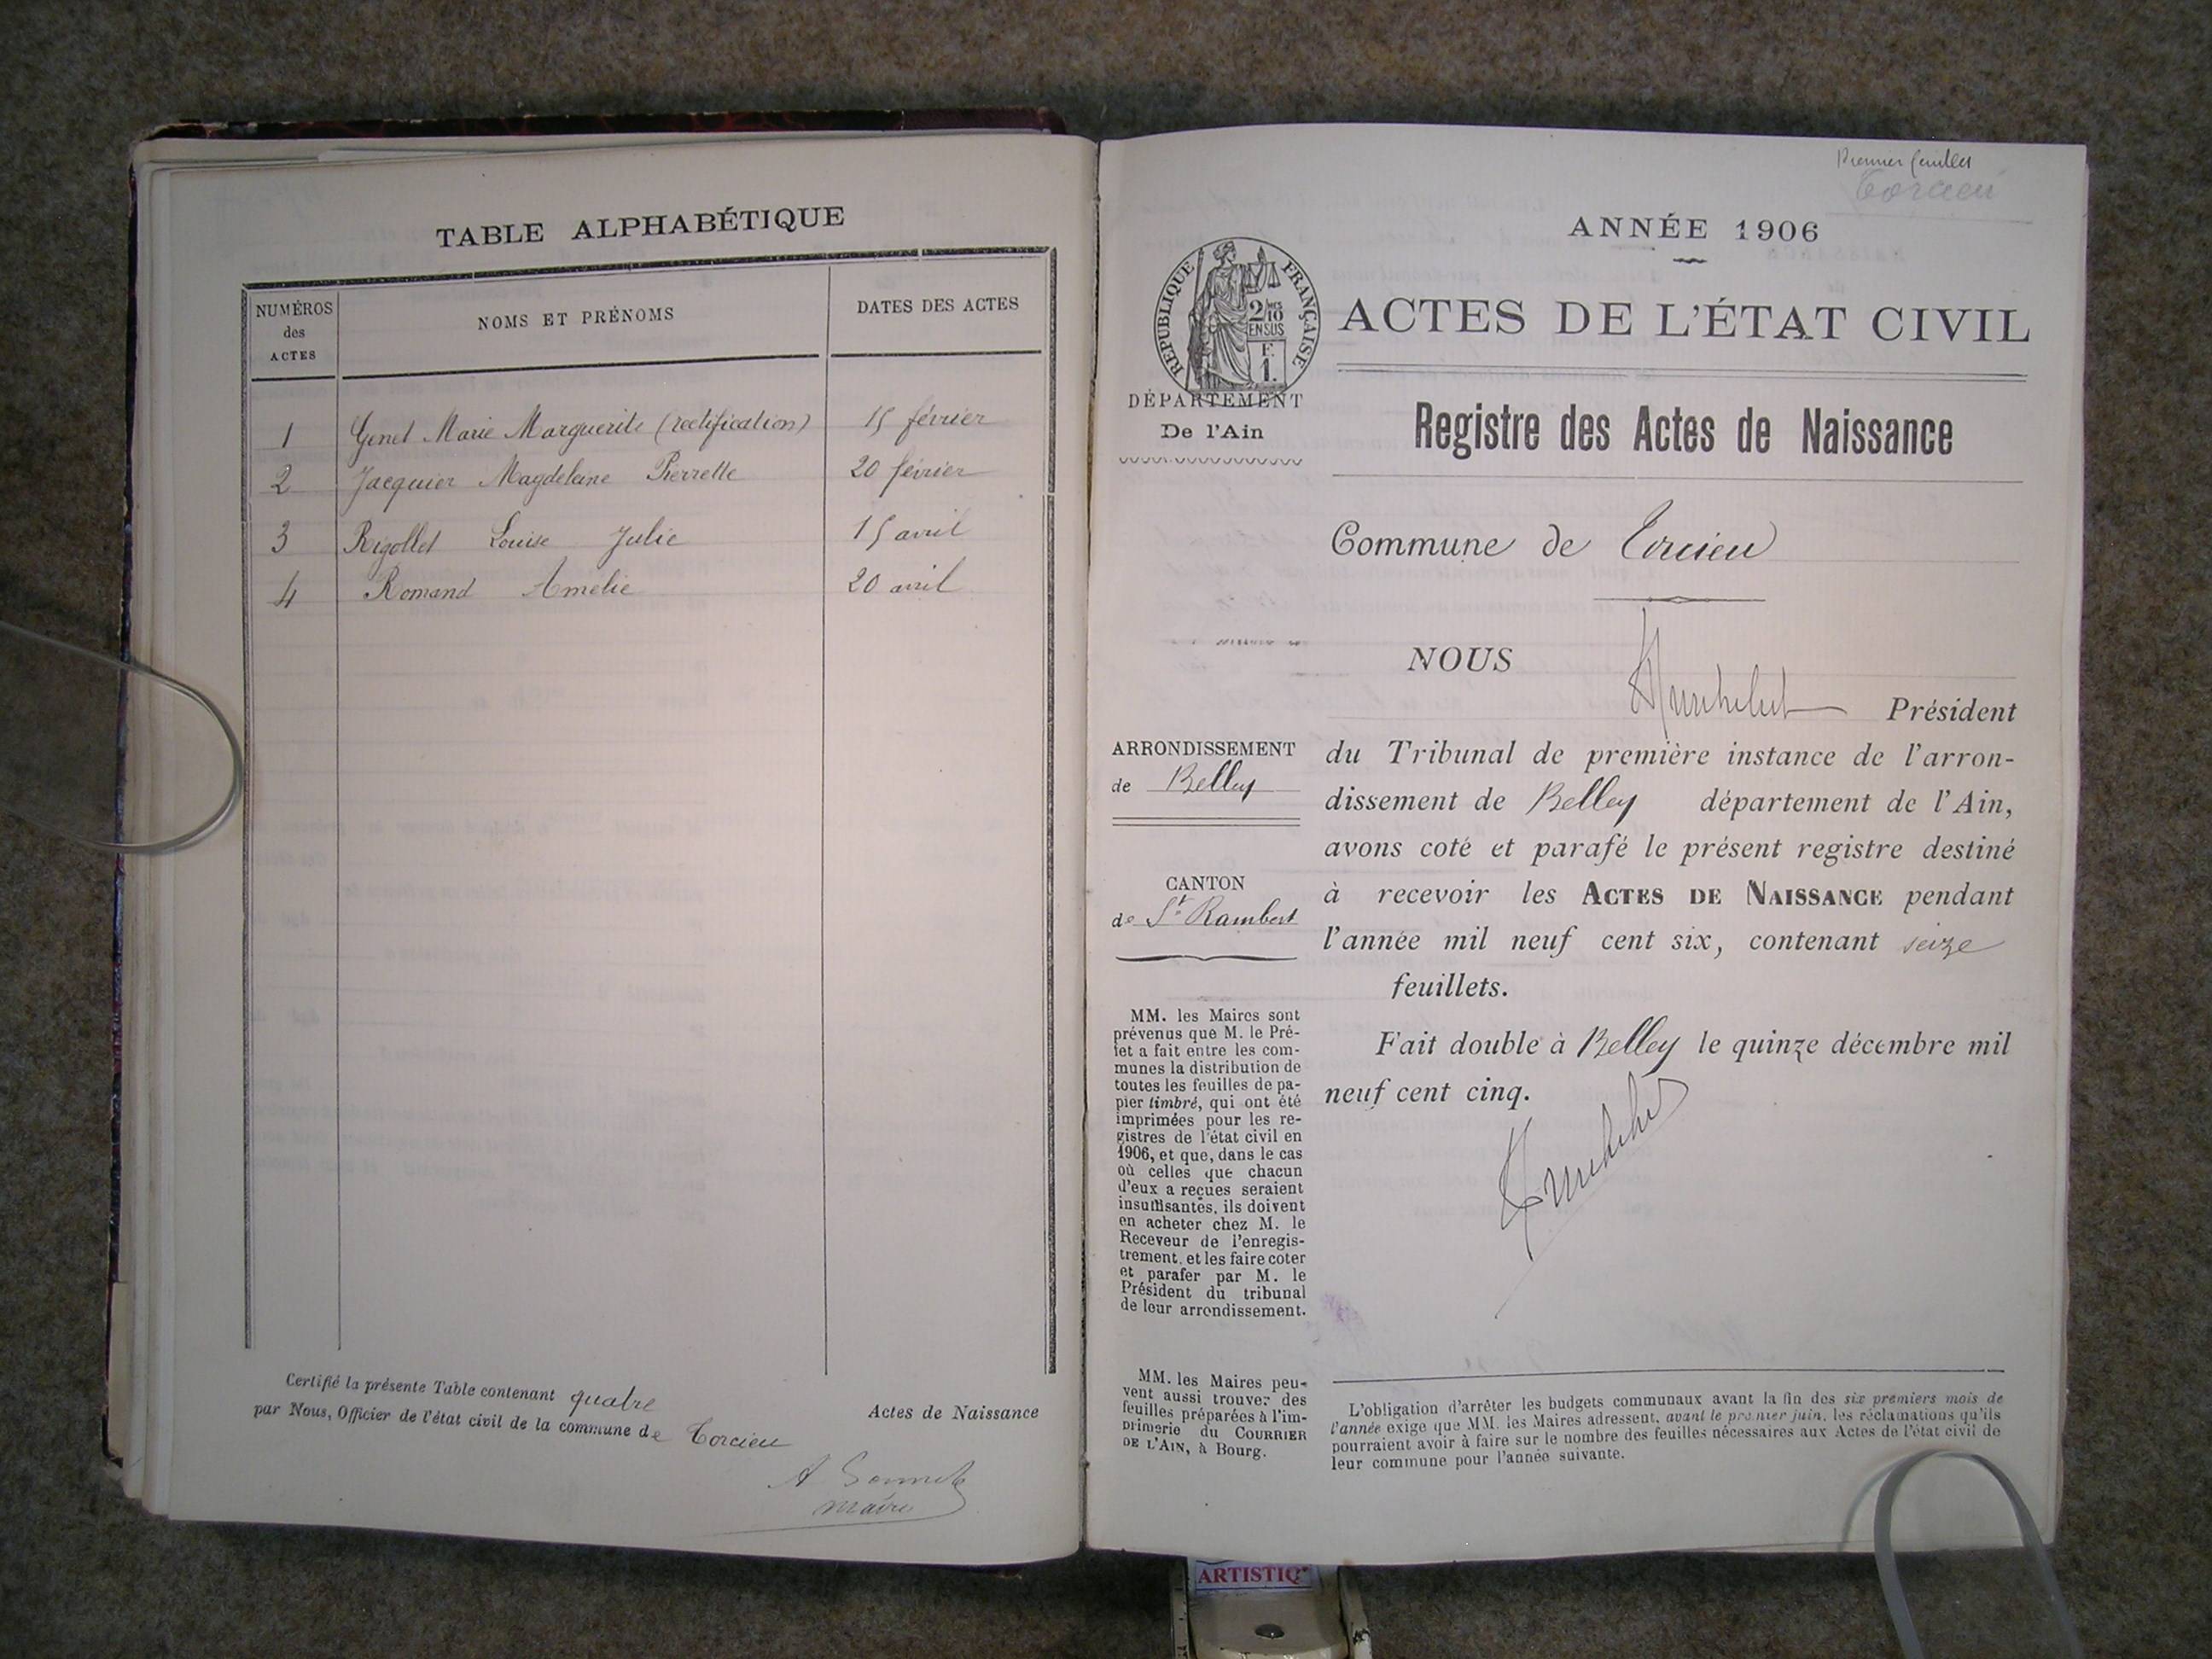 TABLE ALPHABÉTIQUE
NUMÉROS
des
ACTES
NOMS ET PRÉNOMS
DATES DES ACTES
1 Genet Marie Marguerite (rectification) 15 février
2 Jacquier Magdeleine Pierrette 20 février
3 Rigollet Louise Julie 15 avril
4 Romand Amélie 20 avril
Certifié la présente Table contenant quatre Actes de Naissance
par Nous, Officier de l'état civil de la commune de Torcieu
maire
Premier feuillet
Torcieu
ANNÉE 1906
RÉPUBLIQUE FRANÇAISE
2/10 MES
EN SUS
F.
1.
ACTES DE L'ÉTAT CIVIL
DÉPARTEMENT
De l'Ain
Registre des Actes de Naissance
Commune de Torcieu
NOUS
Président
du Tribunal de première instance de l'arron-
dissement de Belley département de l'Ain,
avons coté et parafé le présent registre destiné
à recevoir les ACTES DE NAISSANCE pendant
l'année mil neuf cent six, contenant seize
feuillets.
Fait double à Belley le quinze décembre mil
neuf cent cinq.
ARRONDISSEMENT
de Belley
CANTON
de St Rambert
MM. les Maires sont
prévenus que M. le Pré-
fet a fait entre les com-
munes la distribution de
toutes les feuilles de pa-
pier timbré, qui ont été
imprimées pour les re-
gistres de l'état civil en
1906, et que, dans le cas
où celles que chacun
d'eux a reçues seraient
insuffisantes, ils doivent
en acheter chez M. le
Receveur de l'enregis-
trement, et les faire coter
et parafer par M. le
Président du tribunal
de leur arrondissement.
MM. les Maires peu-
vent aussi trouver des
feuilles préparées à l'im-
primerie du COURRIER
DE L'AIN, à Bourg.
L'obligation d'arrêter les budgets communaux avant la fin des six premiers mois de
l'année exige que MM. les Maires adressent, avant le premier juin, les réclamations qu'ils
pourraient avoir à faire sur le nombre des feuilles nécessaires aux Actes de l'état civil de
leur commune pour l'année suivante.
ARTISTIQ